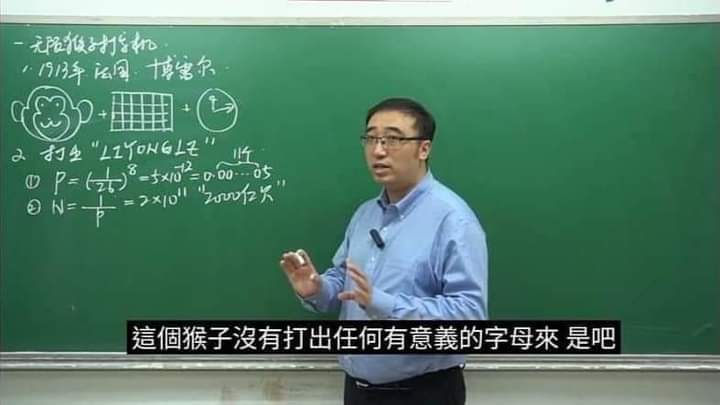 一 无限猴子打字机.
1. 1913年. 法国. 博雷尔.
+ +
2. 打出 "LIYONGLE"
11个
① P=(1/26)^8=5×10^-12=0.00…05
② N=1/P=2×10^11 "2000亿次"
這個猴子沒有打出任何有意義的字母來 是吧